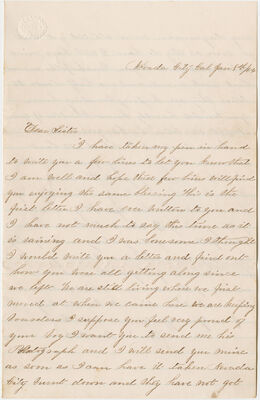 Nevada City Cal Jan 8th/64
Dear Sister
I have taken my pen in hand
to write you a few lines to let you know that
I am well and hope these few lines will find
you enjoying the same blessing this is the
first letter I have ever written to you and
I have not much to say this time as it
is raining and I was lonesome I thought
I would write you a letter and find out
how you were all getting along since
we left We are still living when we first
moved at when we came here we are keeping
ourselves I suppose you feel very proud of
your boy I want you to send me his
Photograph and I will send you mine
as soon as I can have it taken Nevada
City burnt down and they have not got